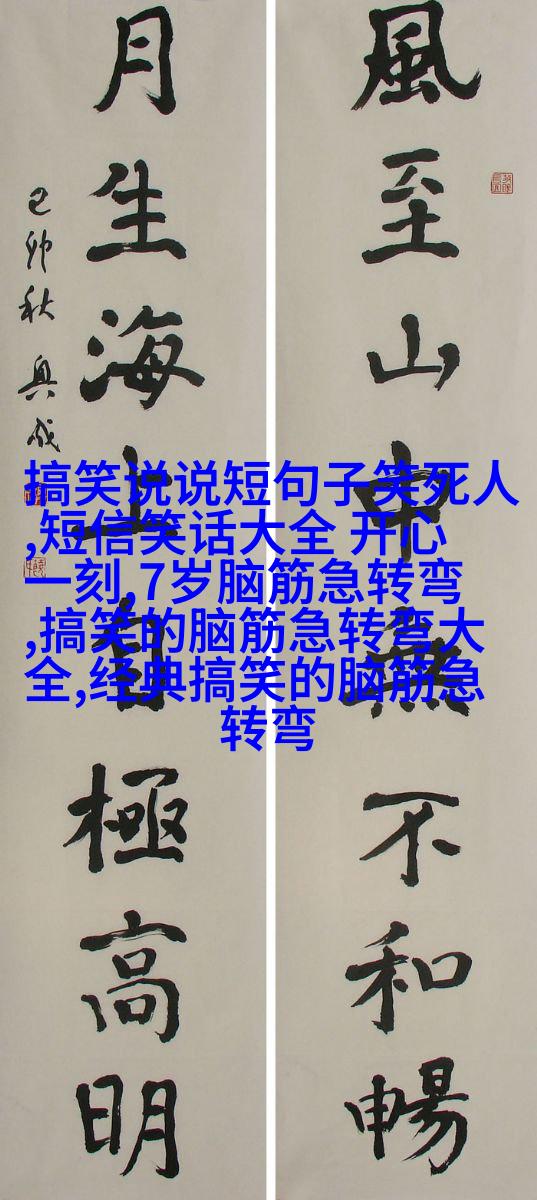 風至山中無不和暢
月生海上自極高明
己卯秋
搞笑说说短句子笑死人
,短信笑话大全 开心
一刻,7岁脑筋急转弯
,搞笑的脑筋急转弯大
全,经典搞笑的脑筋急
转弯